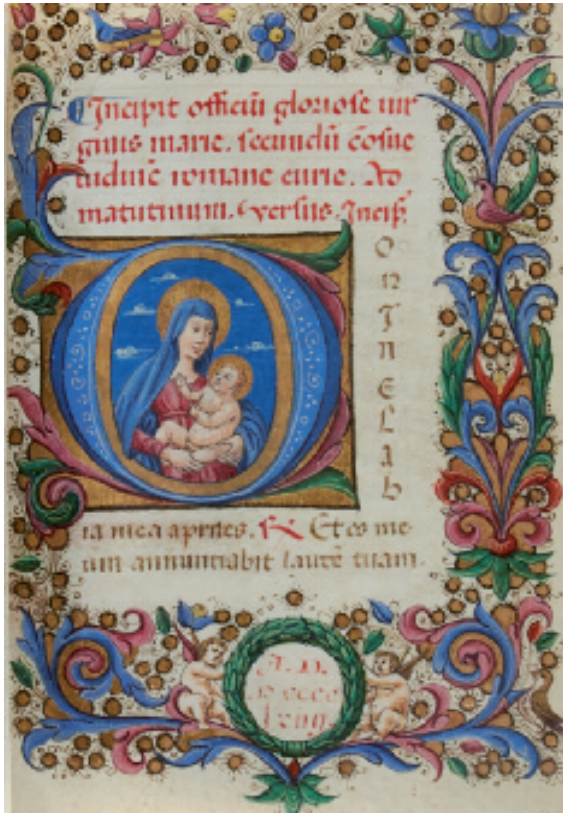 Incipit officiū gloriose uir
ginis marie. secundū cōsue
tudinē romane curie. Ad
matutinum. versus. Incip̄.
D
O
M
I
N
E
L
A
b
ia mea aperies. R Et os me
um annuntiabit laudē tuam.
A. D.
M cccc